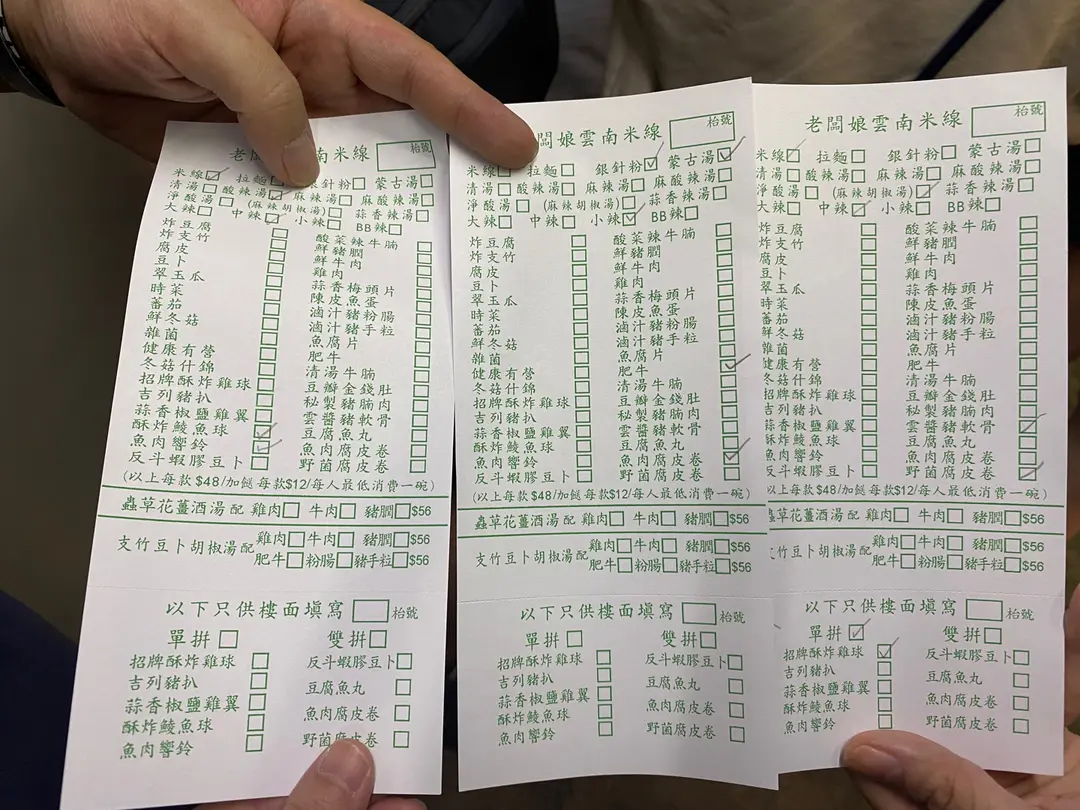 老闆 南米線 枱號
米線 拉 銀針粉 蒙古湯
清湯 酸辣湯 麻辣湯 麻酸辣湯
淨酸湯 (麻辣胡椒湯) 蒜香辣湯
大辣 中辣 小辣 BB辣
炸豆腐 酸菜辣牛腩
炸支竹 鮮豬膶
腐皮 鮮牛肉
豆卜 雞肉
翠玉瓜 蒜香梅頭片
時菜 陳皮魚蛋
蕃茄 滷汁豬粉腸
鮮冬菇 滷汁豬手粒
雜菌 魚腐片
健康有營 肥牛
冬菇什錦 清湯牛腩
招牌酥炸雞球 豆瓣金錢肚
吉列豬扒 秘製豬腩肉
蒜香椒鹽雞翼 雲醬豬軟骨
酥炸鯪魚球 豆腐魚丸
魚肉響鈴 魚肉腐皮卷
反斗蝦膠豆卜 野菌腐皮卷
(以上每款$48/加餸每款$12/每人最低消費一碗)
蟲草花薑酒湯配 雞肉 牛肉 豬膶 $56
支竹豆卜胡椒湯配 雞肉 牛肉 豬膶 $56
肥牛 粉腸 豬手粒 $56
以下只供樓面填寫 枱號
單拼 雙拼
招牌酥炸雞球 反斗蝦膠豆卜
吉列豬扒 豆腐魚丸
蒜香椒鹽雞翼 魚肉腐皮卷
酥炸鯪魚球 野菌腐皮卷
魚肉響鈴
闆娘雲南米線 枱號
米線 拉麵 銀針粉 蒙古湯
清湯 酸辣湯 麻辣湯 麻酸辣湯
淨酸湯 (麻辣胡椒湯) 蒜香辣湯
大辣 中辣 小辣 BB辣
炸豆腐 酸菜辣牛腩
炸支竹 鮮豬膶
腐皮 鮮牛肉
豆卜 雞肉
翠玉瓜 蒜香梅頭片
時菜 陳皮魚蛋
蕃茄 滷汁豬粉腸
鮮冬菇 滷汁豬手粒
雜菌 魚腐片
健康有營 肥牛
冬菇什錦 清湯牛腩
招牌酥炸雞球 豆瓣金錢肚
吉列豬扒 秘製豬腩肉
蒜香椒鹽雞翼 雲醬豬軟骨
酥炸鯪魚球 豆腐魚丸
魚肉響鈴 魚肉腐皮卷
反斗蝦膠豆卜 野菌腐皮卷
(以上每款$48/加餸每款$12/每人最低消費一碗)
蟲草花薑酒湯配 雞肉 牛肉 豬膶 $56
支竹豆卜胡椒湯配 雞肉 牛肉 豬膶 $56
肥牛 粉腸 豬手粒 $56
以下只供樓面填寫 枱號
單拼 雙拼
招牌酥炸雞球 反斗蝦膠豆卜
吉列豬扒 豆腐魚丸
蒜香椒鹽雞翼 魚肉腐皮卷
酥炸鯪魚球 野菌腐皮卷
魚肉響鈴
老闆娘雲南米線 枱號
米線 拉麵 銀針粉 蒙古湯
清湯 酸辣湯 麻辣湯 麻酸辣湯
淨酸湯 (麻辣胡椒湯) 蒜香辣湯
大辣 中辣 小辣 BB辣
炸豆腐 酸菜辣牛腩
炸支竹 鮮豬膶
腐皮 鮮牛肉
豆卜 雞肉
翠玉瓜 蒜香梅頭片
時菜 陳皮魚蛋
蕃茄 滷汁豬粉腸
鮮冬菇 滷汁豬手粒
雜菌 魚腐片
健康有營 肥牛
冬菇什錦 清湯牛腩
招牌酥炸雞球 豆瓣金錢肚
吉列豬扒 秘製豬腩肉
蒜香椒鹽雞翼 雲醬豬軟骨
酥炸鯪魚球 豆腐魚丸
魚肉響鈴 魚肉腐皮卷
反斗蝦膠豆卜 野菌腐皮卷
以上每款$48/加餸每款$12/每人最低消費一碗)
蟲草花薑酒湯配 雞肉 牛肉 豬膶 $56
支竹豆卜胡椒湯配 雞肉 牛肉 豬膶 $56
肥牛 粉腸 豬手粒 $56
以下只供樓面填寫 枱號
單拼 雙拼
招牌酥炸雞球 反斗蝦膠豆卜
吉列豬扒 豆腐魚丸
蒜香椒鹽雞翼 魚肉腐皮卷
酥炸鯪魚球 野菌腐皮卷
魚肉響鈴